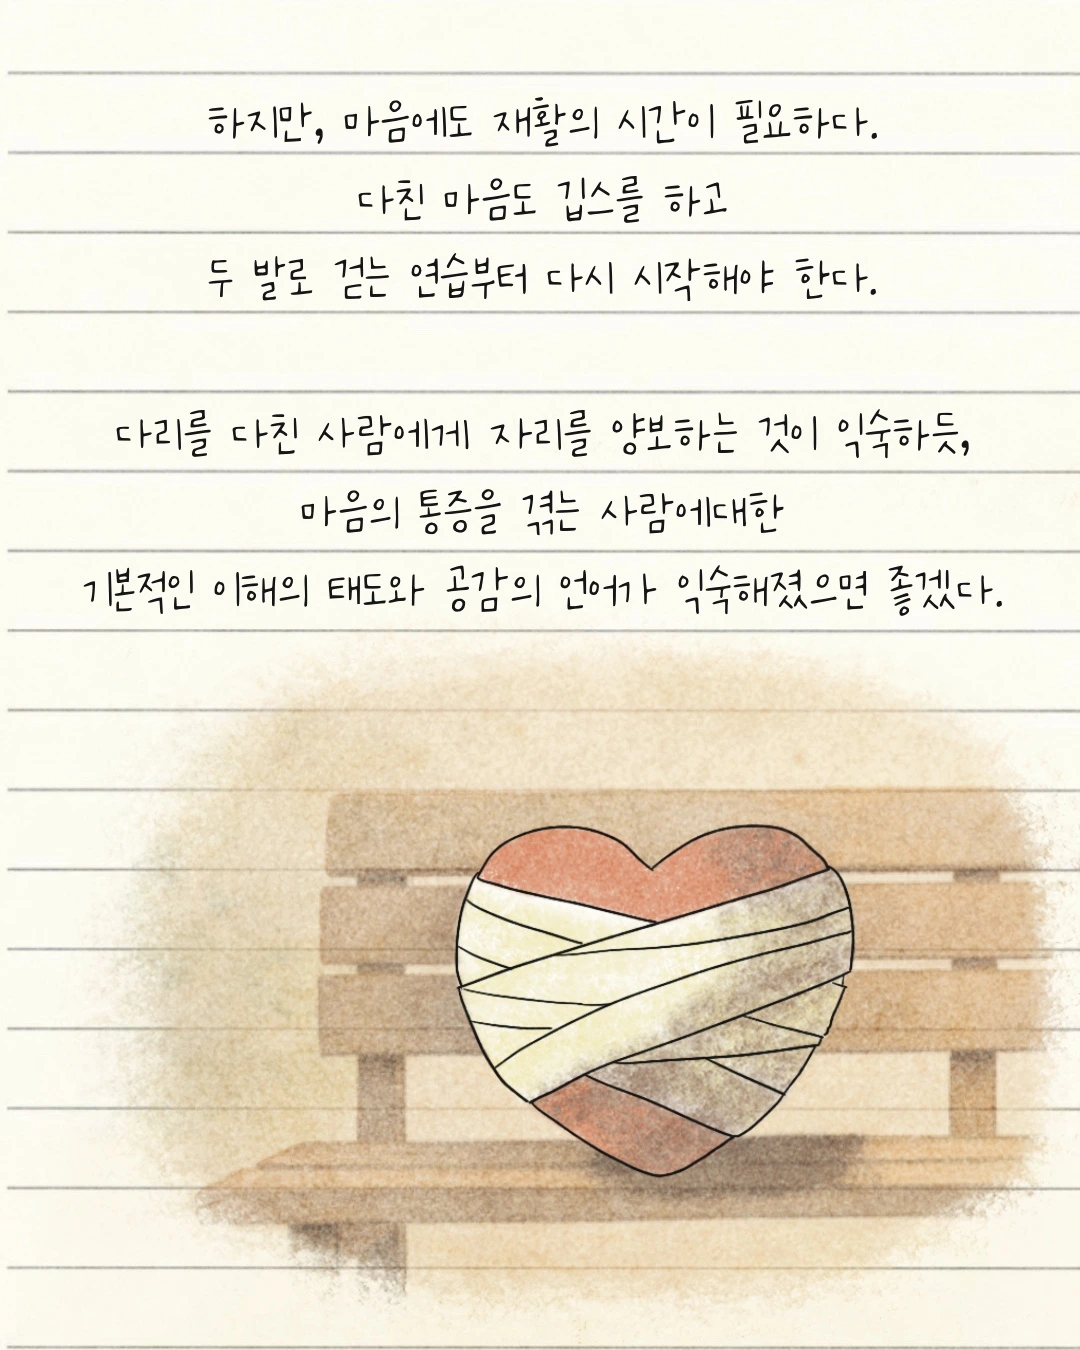 하지만, 마음에도 재활의 시간이 필요하다.
다친 마음도 깁스를 하고
두 발로 걷는 연습부터 다시 시작해야 한다.
다리를 다친 사람에게 자리를 양보하는 것이 익숙하듯,
마음의 통증을 겪는 사람에대한
기본적인 이해의 태도와 공감의 언어가 익숙해졌으면 좋겠다.